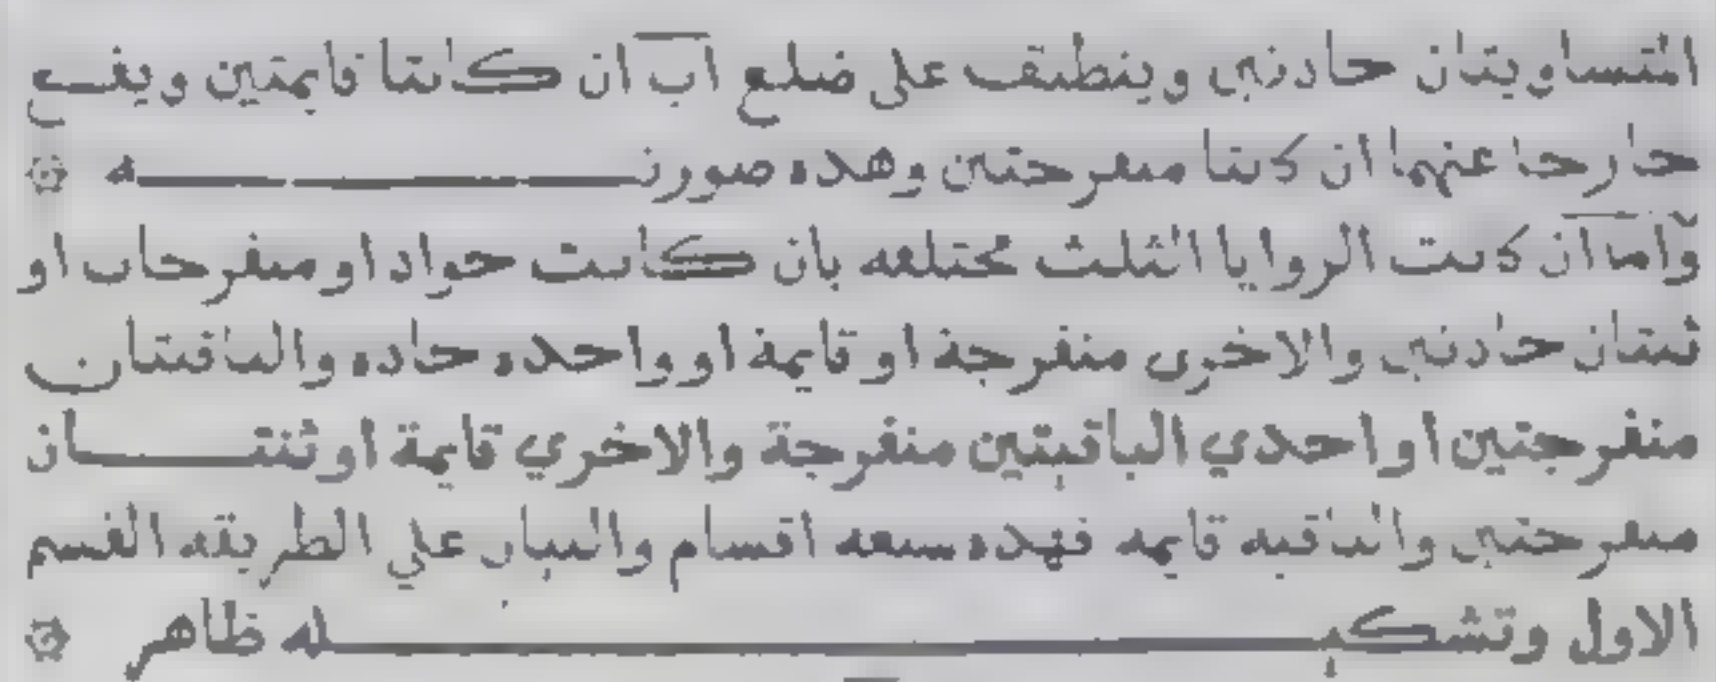 المتساويتان حادتين وينطبق على ضلع اب ان كانتا قايمتين ويقع
خارجا عنهما ان كانتا منفرجتين وهذه صورته
واما ان كانت الزوايا الثلث مختلفه بان كانت حواد او منفرجات او
ثنتان حادتين والاخرى منفرجة او قايمة او واحده حاده والباقيتان
منفرجتين او احدي الباقيتين منفرجة والاخري قايمة او ثنتان
منفرجتين والباقيه قايمه فهذه سبعه اقسام والبيان علي الطريقه القسم
الاول وتشكيله ظاهر